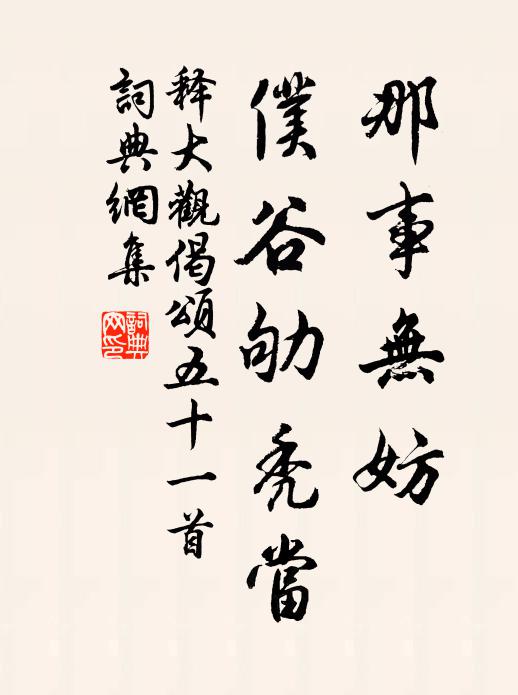 那事無妨
僕谷劬禿當
释大觀偈頌五十一首
詞典網集
詞典网印